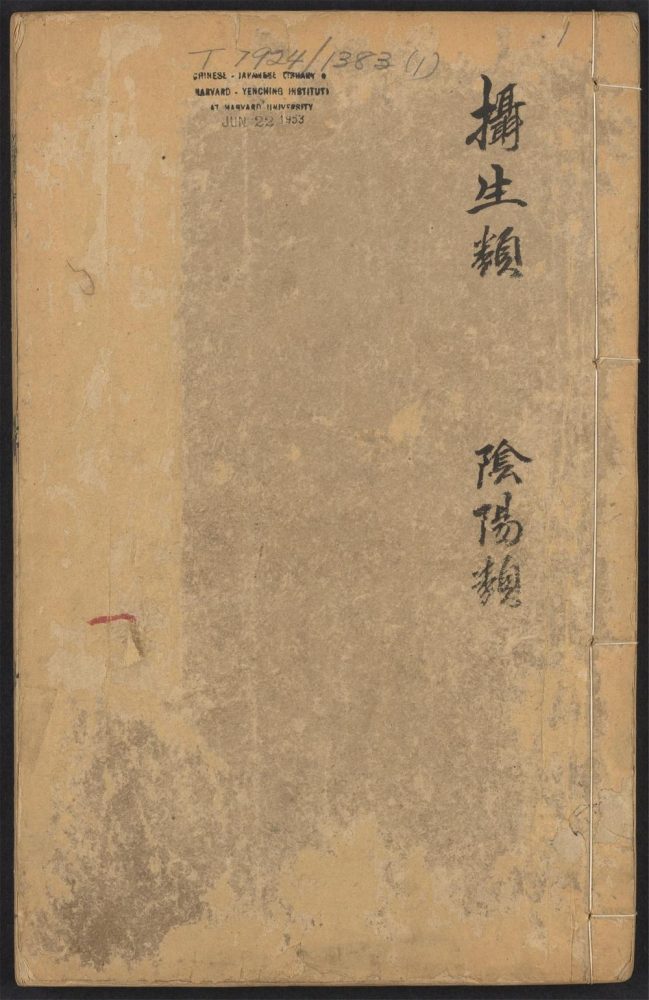 T 7924/1383 (1)
1
CHINESE - JAPANESE LIBRARY
HARVARD - YENCHING INSTITUTE
AT HARVARD UNIVERSITY
JUN 22 1953
攝生類
陰陽類